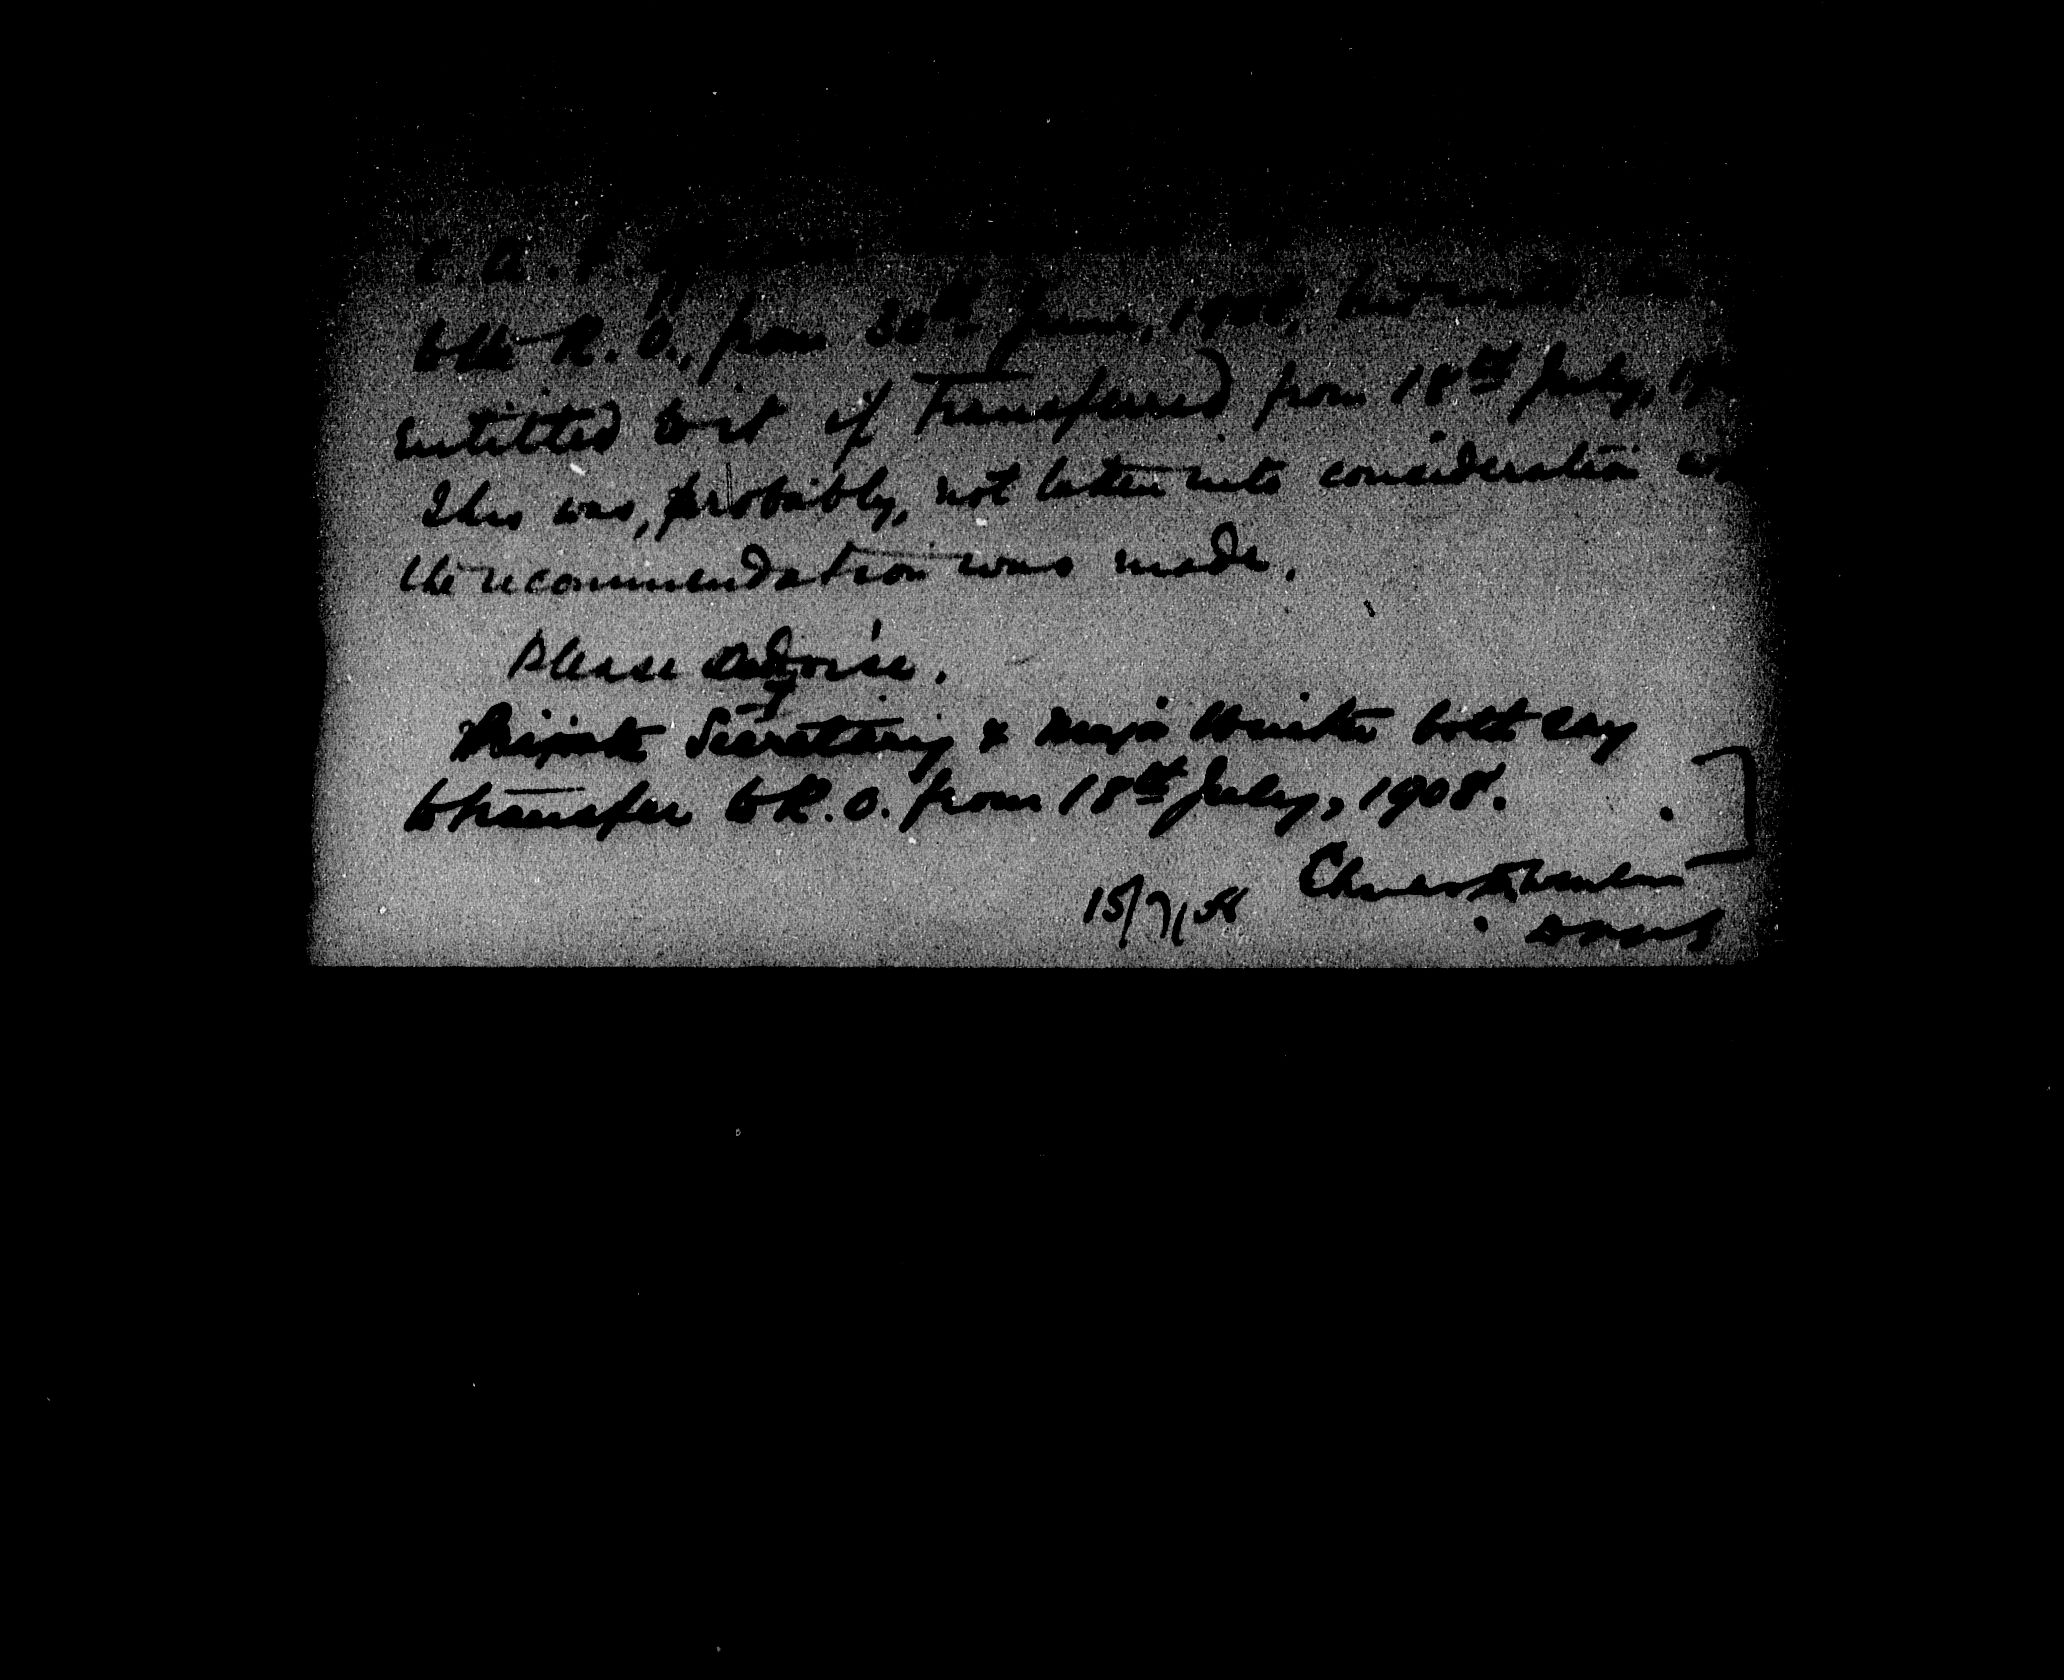 to the R. O., from 30th June, 1908, but will be
entitled to it if transferred from 18th July,
This was, probably, not taken into consideration
the recommendation was made.
Please advise.
Private Secretary & Major Winter both say
to transfer to R. O. from 18th July, 1908.
15/7/08